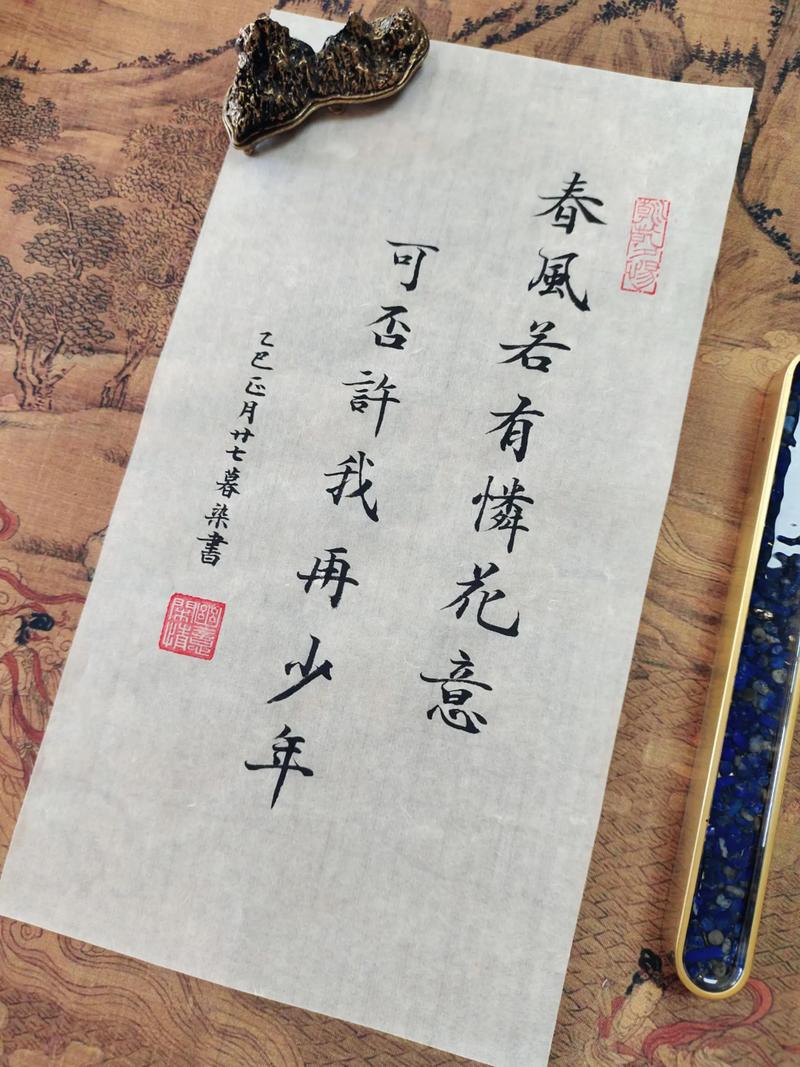 春風若有憐花意
可否許我再少年
乙巳正月廿七暮染書